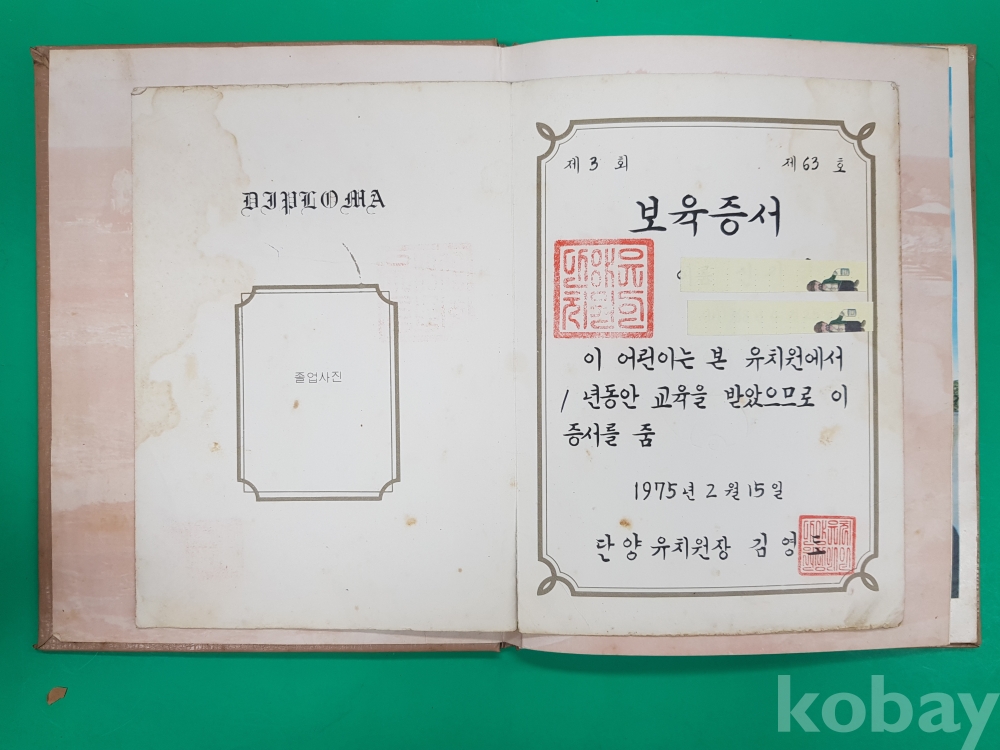 DIPLOMA
졸업사진
제 3 회 제 63 호
보육증서
이 어린이는 본 유치원에서
1 년동안 교육을 받았으므로 이
증서를 줌
1975년 2월 15일
단양 유치원장 김영도
kobay